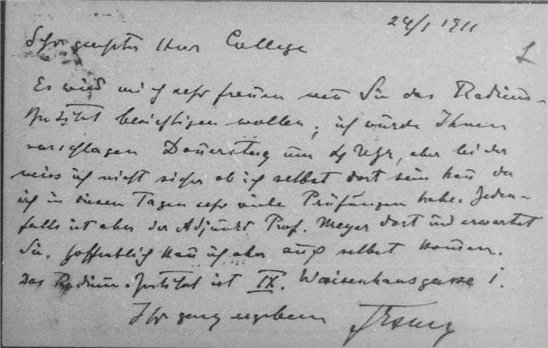 24/1 1911
1
Sehr geehrter Herr College
Es wird mich sehr freuen wenn Sie das Radium-
Institut besichtigen wollen; ich würde Ihnen
vorschlagen Donnerstag um 4 Uhr, aber leider
weiss ich nicht sicher ob ich selbst dort sein kann da
ich in diesen Tagen sehr viele Prüfungen habe. Jeden-
falls ist aber der Adjunkt Prof. Meyer dort und erwartet
Sie. Hoffentlich kann ich aber auch selbst kommen.
Das Radium-Institut ist IX. Waisenhausgasse
Ihr ganz ergebener